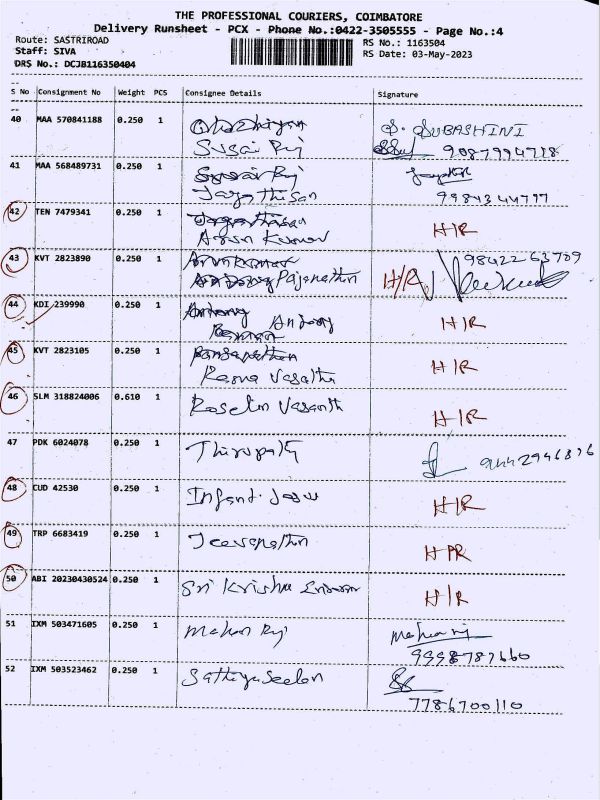 THE PROFESSIONAL COURIERS, COIMBATORE
Delivery Runsheet - PCX - Phone No.:0422-3505555 - Page No.:4
Route: SASTRIROAD
RS No.: 1163504
Staff: SIVA
RS Date: 03-May-2023
DRS No.: DCJB116350404
S No Consignment No Weight PCS Consignee Details Signature
40 MAA 570841188 0.250 1 S. SUBASHINI
Susai Raj 9087994718
41 MAA 568489731 0.250 1 Susai Raj
Jagathisan 9984344777
42 TEN 7479341 0.250 1 Jagathisan H/R
Arun Kumar
43 KVT 2823890 0.250 1 Arun Kumar H/R 9842263709
Antony Pajanathin
44 KDI 239990 0.250 1 Antony Antony H/R
45 KVT 2823105 0.250 1 H/R
Rasna Vasathi
46 SLM 318824006 0.610 1 Roselin Vasanth H/R
47 PDK 6024078 0.250 1 Thirupathi 9442946876
48 CUD 42530 0.250 1 Infant Jesu H/R
49 TRP 6683419 0.250 1 Jeevanathin H/R
50 ABI 20230430524 0.250 1 Sri Krishna H/R
51 IXM 503471605 0.250 1 Mahan Raj
9998787660
52 IXM 503523462 0.250 1 Sathiyaseelan
7786700110